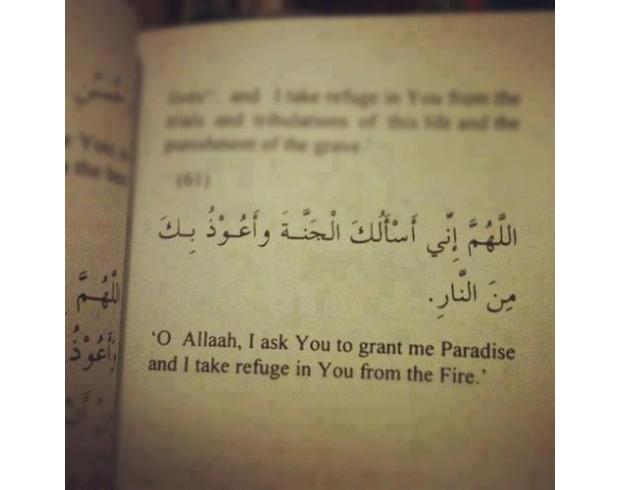 lives", and I take refuge in You from the
trials and tribulations of this life and the
punishment of the grave.'
(61)
اللَّهُمَّ إِنِّي أَسْأَلُكَ الْجَنَّـةَ وأَعُـوْذُ بِـكَ
مِنَ النَّارِ.
'O Allaah, I ask You to grant me Paradise
and I take refuge in You from the Fire.'
اللَّهُمَّ
وَأَعُوْذُ